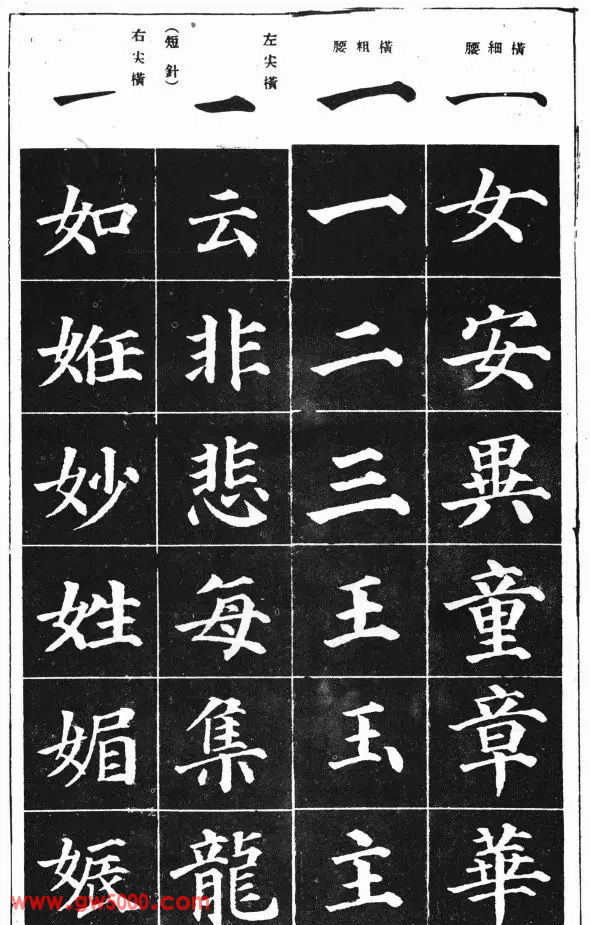 橫細腰
一
女
安
異
童
章
華
橫粗腰
一
一
二
三
王
玉
主
左尖橫
(短針)
一
云
非
悲
每
集
龍
右尖橫
一
如
姙
妙
姓
媚
娠
www.gw5000.com